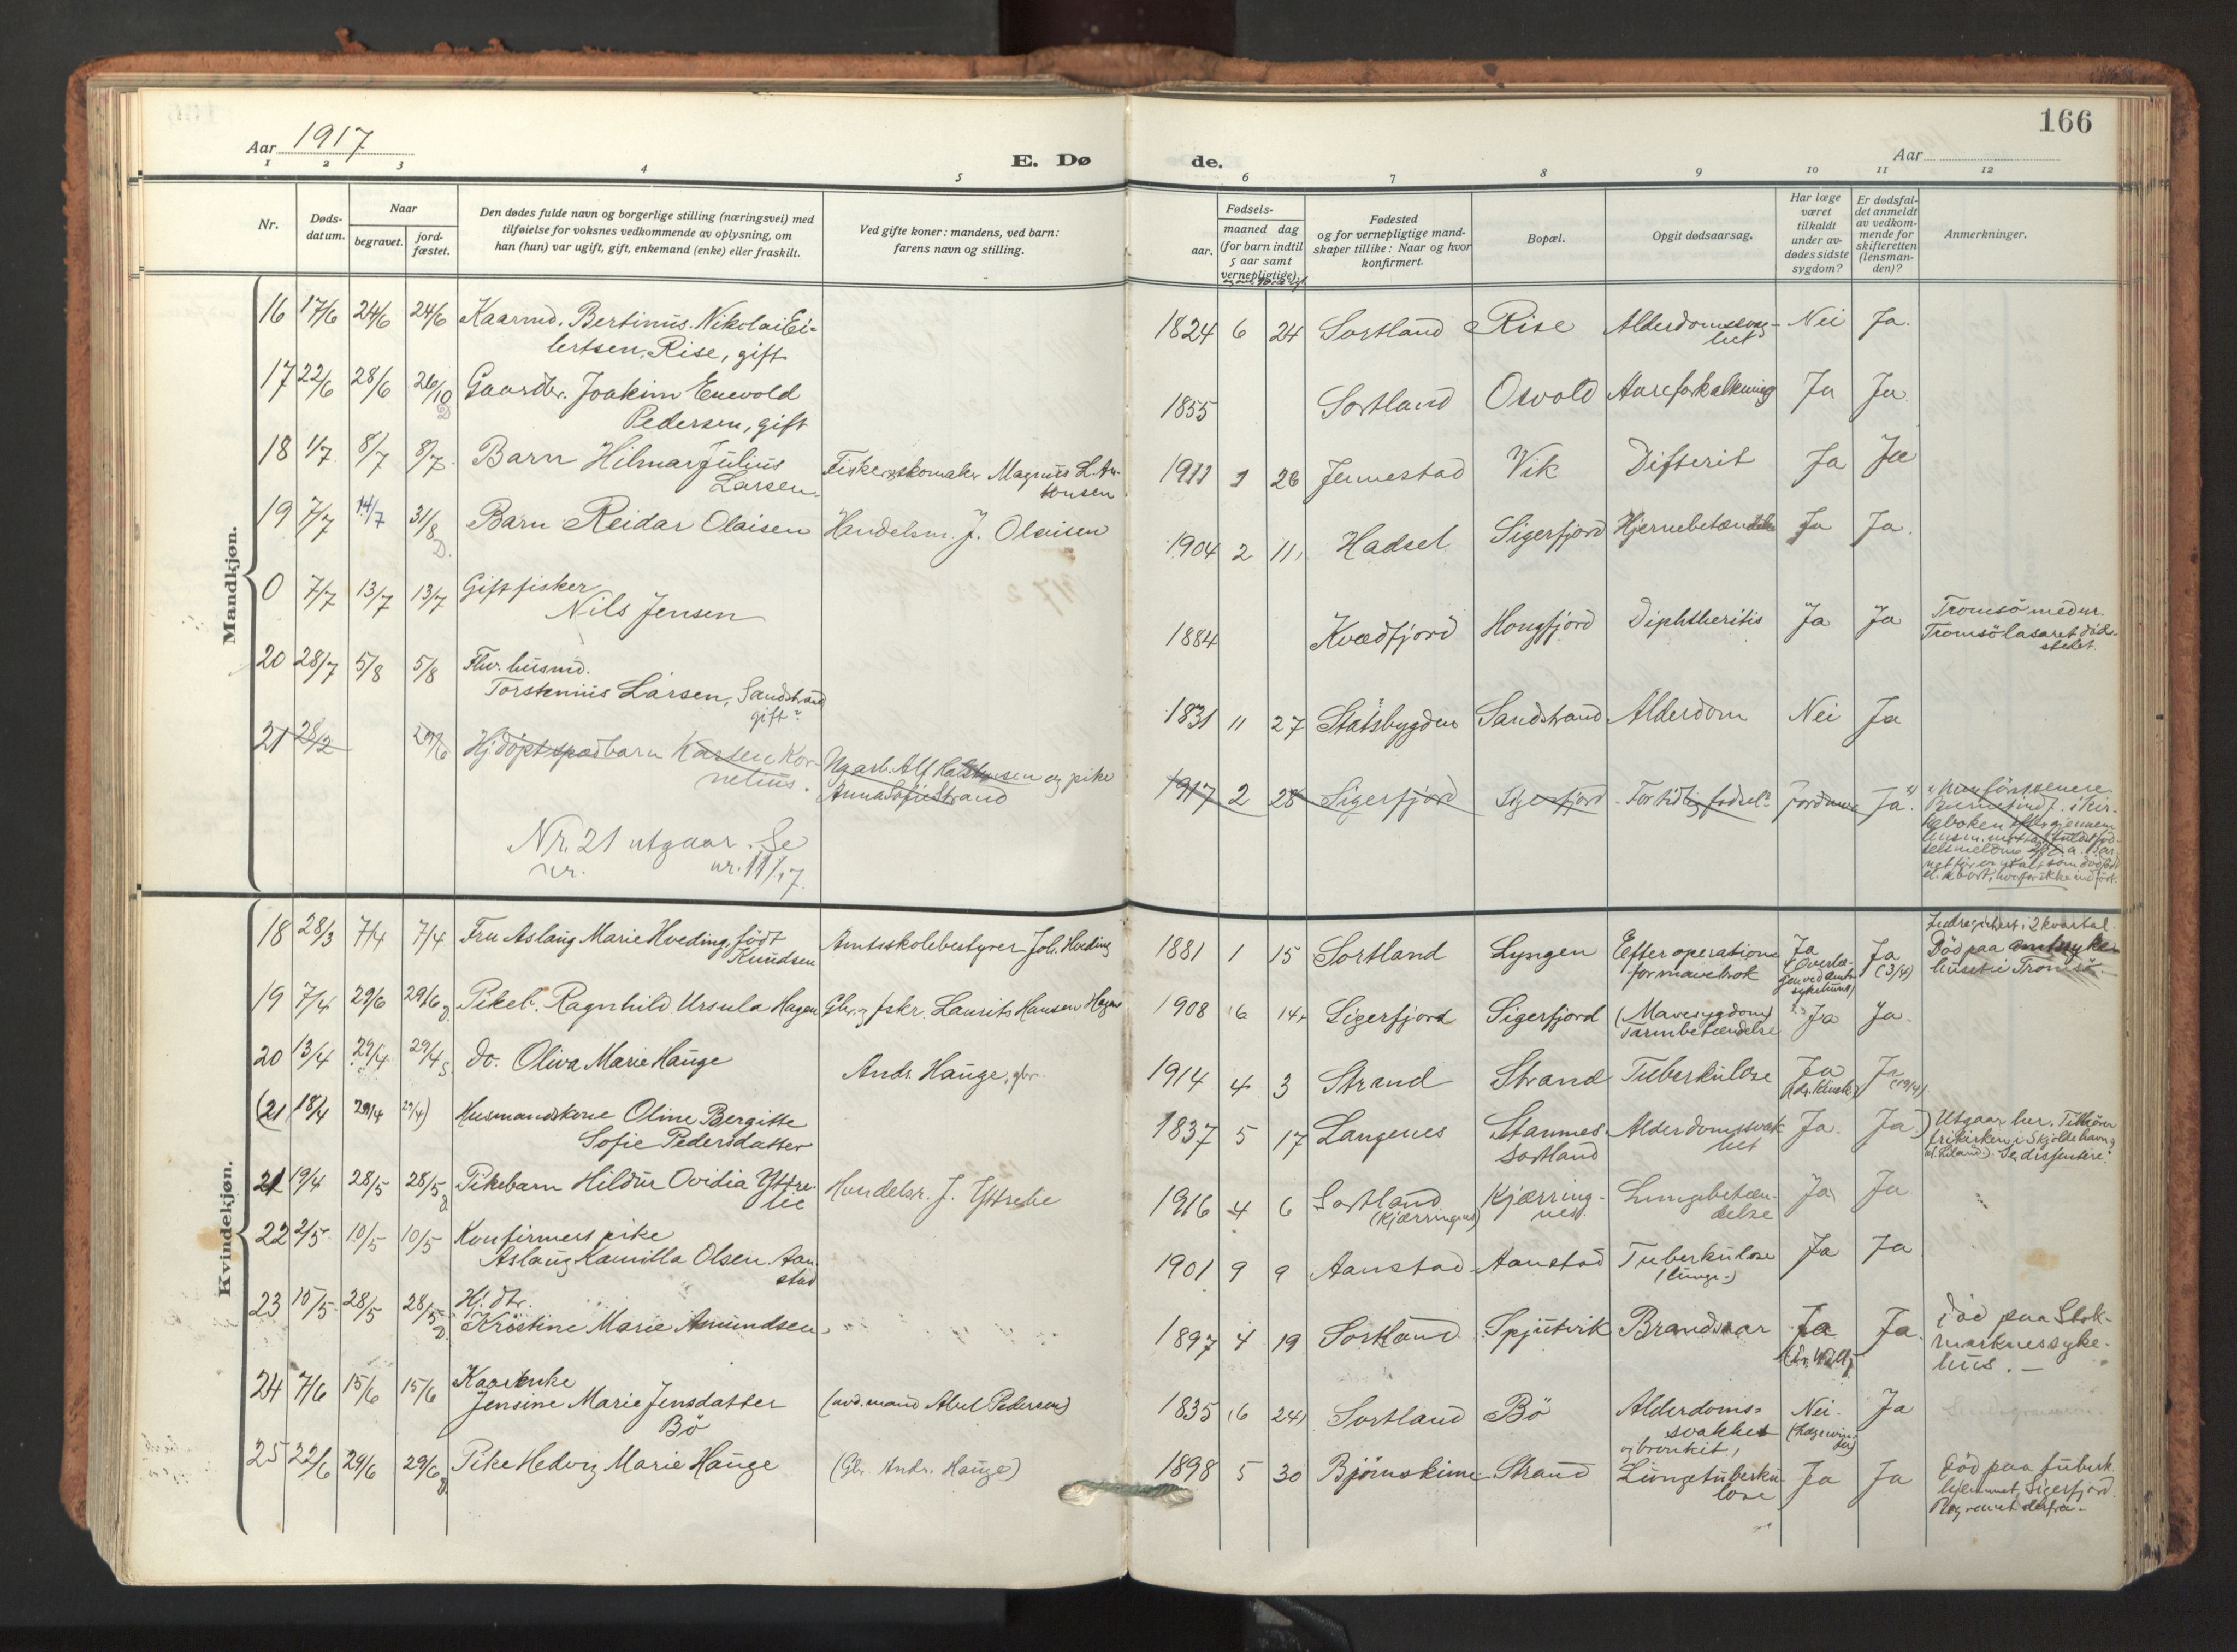 166
Aar 1917
E. Dø
de.
Aar
1 2 3 4 5 6 7 8 9 10 11 12
Nr.
Døds-
datum.
Naar
begravet.
jord-
fæstet.
Den dødes fulde navn og borgerlige stilling (næringsvei) med
tilføielse for voksnes vedkommende av oplysning, om
han (hun) var ugift, gift, enkemand (enke) eller fraskilt.
Ved gifte koner: mandens, ved barn:
farens navn og stilling.
Fødsels-
aar.
maaned dag
(for barn indtil
5 aar samt
vernepligtige).
Fødested
og for vernepligtige mand-
skaper tillike: Naar og hvor
konfirmert.
Bopæl.
Opgit dødsaarsag.
Har læge
været
tilkaldt
under av-
dødes sidste
sygdom?
Er dødsfal-
det anmeldt
av vedkom-
mende for
skifteretten
(lensman-
den)?
Anmerkninger.
Mandkjøn.
16 17/6 24/6 24/6 Kaarmd. Bertinus Nikolai Ei-
lertsen, Rise, gift
1824 6 24 Sortland Rise Alderdomssvag-
het Nei Ja.
17 22/6 28/6 26/10 D Gaardbr. Joakim Enevold
Pedersen, gift
1855 Sortland Osvold Aareforkalkning Ja Ja
18 1/7 8/7 8/7 Barn Hilmar Julius
Larsen
Fisker og skomaker Magnus L. An-
tonsen
1911 26 Jennestad Vik Difterit Ja Ja
19 7/7 14/7 31/8 D. Barn Reidar Olaisen Handelsm. J. Olaisen
1904 2 11 Hadsel Sigerfjord Hjernebetændelse Ja Ja.
0 7/7 13/7 13/7 Gift fisker
Nils Jensen
1884 Kvædfjord Diphtheritis Ja Ja Tromsö medur.
Tromsö lasaret döds-
stedet.
20 28/7 5/8 5/8 Fhv. husmd.
Torstenius Larsen, Sandstrand
gift
1831 11 27 Statsbygden Sandstrand Alderdom Nei Ja
21 28/2 29/6 Hj.döpt spædbarn Karsten Kor-
nelius.
Ugarb. Alf Halstensen og pike
Anna Sofie Strand
1917 2 28 Sigerfjord Sigerfjord For tidlig födsel Jordmor Ja
Nr. 21 utgaar. Se
nr. nr. 11/17.
Kvindekjøn.
18 28/3 7/4 7/4 Fru Aslaug Marie Hveding, født
Knudsen
Amtsskolebestyrer Joh. Hveding
1881 1 15 Sortland Lyngen Efter operation
for mavebrok Ja
(Overlæ-
gen ved amts-
sykehuset) Ja
(3/4)
Indregistrert i 2 kvartal.
Död paa amtssyke-
huset i Tromsö.
19 7/4 29/6 29/6 D. Pikeb. Ragnhild Ursula Hagen Gbr. og fskr. Laurits Hansen Hagen
1908 6 14 Sigerfjord Sigerfjord (Mavesygdom)
Tarmbetændelse Ja Ja.
20 13/4 29/4 29/4 S. do. Oliva Marie Hauge Andr. Hauge, gbr.
1914 4 3 Strand Strand Tuberkulose Ja Ja
(19/4)
(21 18/4 29/4 29/4) Husmandskone Oline Bergitte
Sofie Pedersdatter
1837 5 17 Langenes Stamnes
Sortland Alderdomssvak
het Ja. Ja.) Utgaar her. Tilhörer
frikirken i Skjoldehavn,
Se dissentere.
21 19/4 28/5 28/5 D Pikebarn Hildur Ovidia Yttre-
lie
Handelsr. J. Yttrelie
1916 4 6 Sortland
(Kjærringnes) Kjærring-
nes. Lungebetæn-
delse Ja Ja
22 2/5 10/5 10/5 Konfirmert pike
Aslaug Kamilla Olsen Aan-
stad
1901 9 9 Aanstad Aanstad Tuberkulose
(lunge-) Ja Ja
23 15/5 28/5 28/5 D. Hj. dtr.
Kristine Marie Amundsen
1897 4 19 Sortland Spjutvik Brandsaar Ja Ja. Död paa Stok-
marknes syke-
hus.
24 7/6 15/6 15/6 Kaarenke
Jensine Marie Jensdatter
Bö
(avd. mand Abel Pedersen)
1835 6 24 Sortland Bö Alderdoms-
svakhet
og bronkit, Nei. Ja
25 22/6 29/6 29/6 D. Pike Hedvig Marie Hauge (Gbr. Andr. Hauge)
1898 5 30 Bjørnskinn Strand Lungetuberku-
lose Ja Ja Död paa tuberk.
hjemmet, Sigerfjord.
Begravet derfra.